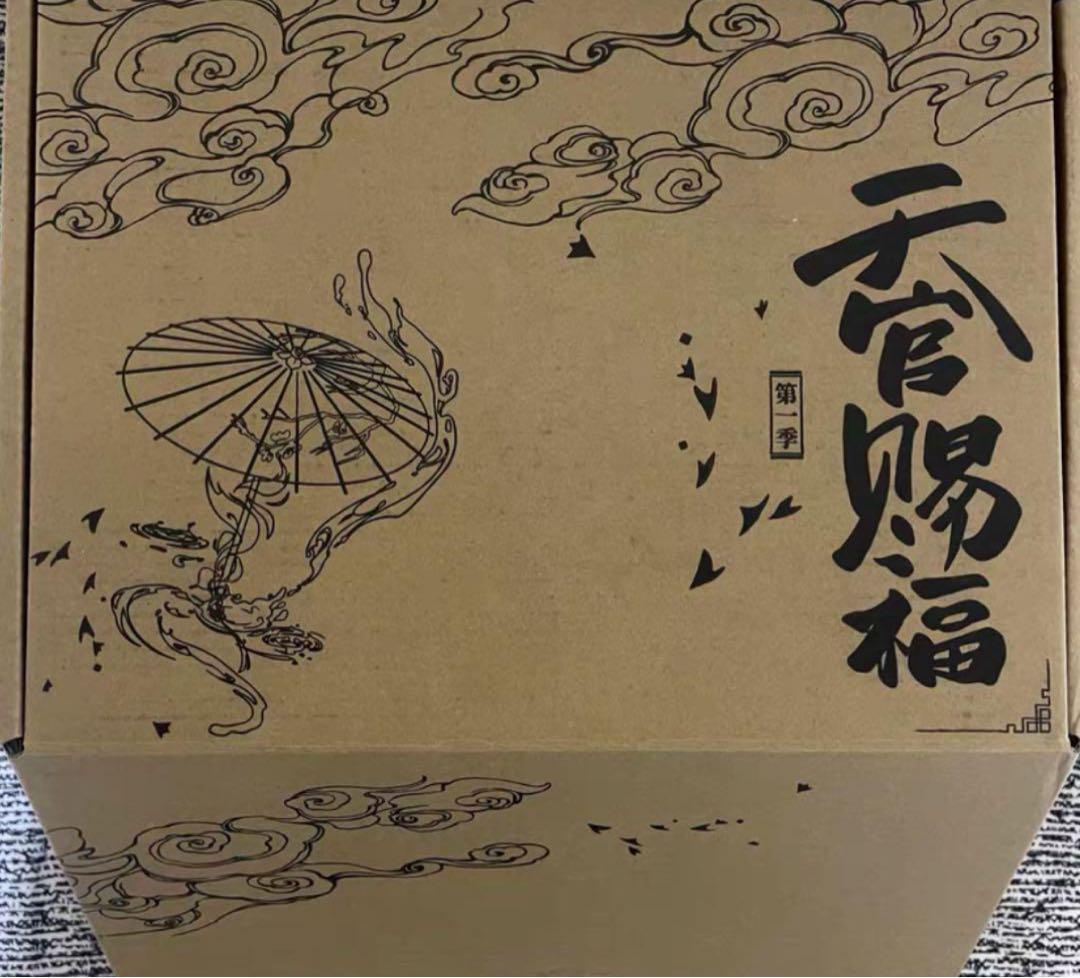 天官赐福
第一季